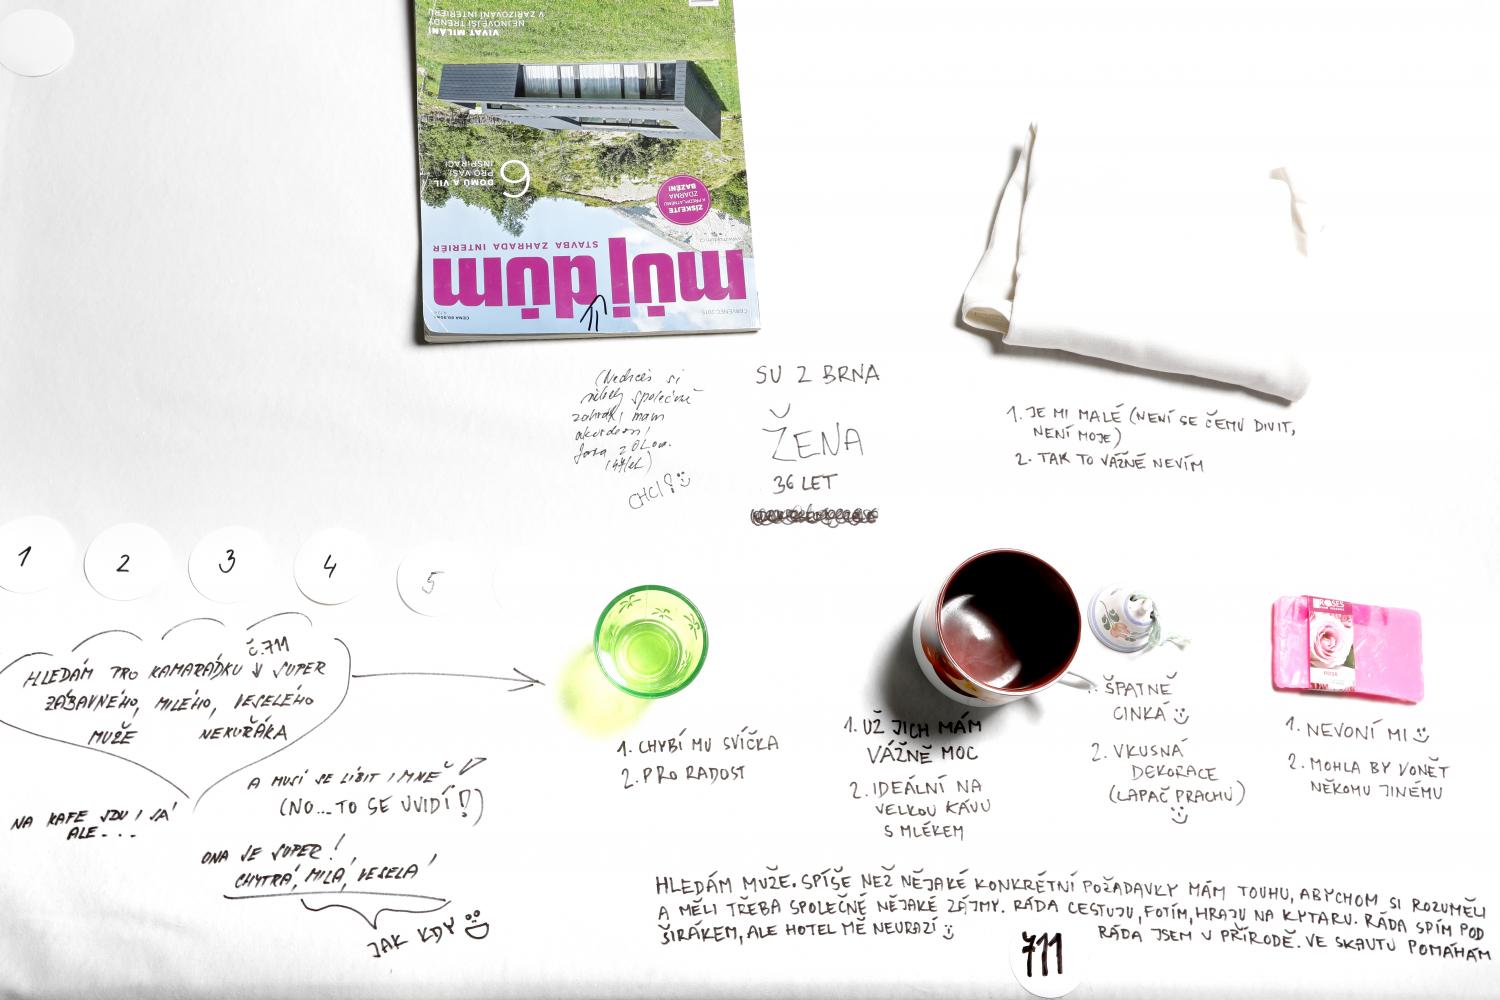 VIVAT MILÁNI
NEJNOVĚJŠÍ TRENDY
V ZAŘIZOVÁNÍ INTERIÉRU
6
DOMŮ A VIL
PRO VAŠI
INSPIRACI
ZÍSKEJTE
K PŘEDPLATNÉMU
ZDARMA
BAZÉN!
STAVBA ZAHRADA INTERIÉR
můj dům
ČERVENEC 2015
(Nechceš si
někdy společně
zahrát, mám
akordeon!
CHCI!
SU Z BRNA
ŽENA
36 LET
1. JE MI MALÉ (NENÍ SE ČEMU DIVIT,
NENÍ MOJE)
2. TAK TO VÁŽNĚ NEVÍM
1
2
3
4
5
Č. 711
HLEDÁM PRO KAMARÁDKU SUPER
ZÁBAVNÉHO, MILÉHO, VESELÉHO
MUŽE NEKUŘÁKA
A MUSÍ SE LÍBIT I MNĚ
(NO... TO SE UVIDÍ!)
NA KAFE JDU I JÁ
ALE...
ONA JE SUPER!
CHYTRÁ, MILÁ, VESELÁ!
JAK KDY
1. CHYBÍ MU SVÍČKA
2. PRO RADOST
1. UŽ JICH MÁM
VÁŽNĚ MOC
2. IDEÁLNÍ NA
VELKOU KÁVU
S MLÉKEM
1. ŠPATNĚ
CINKÁ
2. VKUSNÁ
DEKORACE
(LAPAČ PRACHU)
ROSES
1. NEVONÍ MI
2. MOHLA BY VONĚT
NĚKOMU JINÉMU
HLEDÁM MUŽE. SPÍŠE NEŽ NĚJAKÉ KONKRÉTNÍ POŽADAVKY MÁM TOUHU, ABYCHOM SI ROZUMĚLI
A MĚLI TŘEBA SPOLEČNÉ NĚJAKÉ ZÁJMY. RÁDA CESTUJU, FOTÍM, HRAJU NA KYTARU. RÁDA SPÍM POD
ŠIRÁKEM, ALE HOTEL MĚ NEURAZÍ
RÁDA JSEM V PŘÍRODĚ. VE SKAUTU POMÁHÁM
711